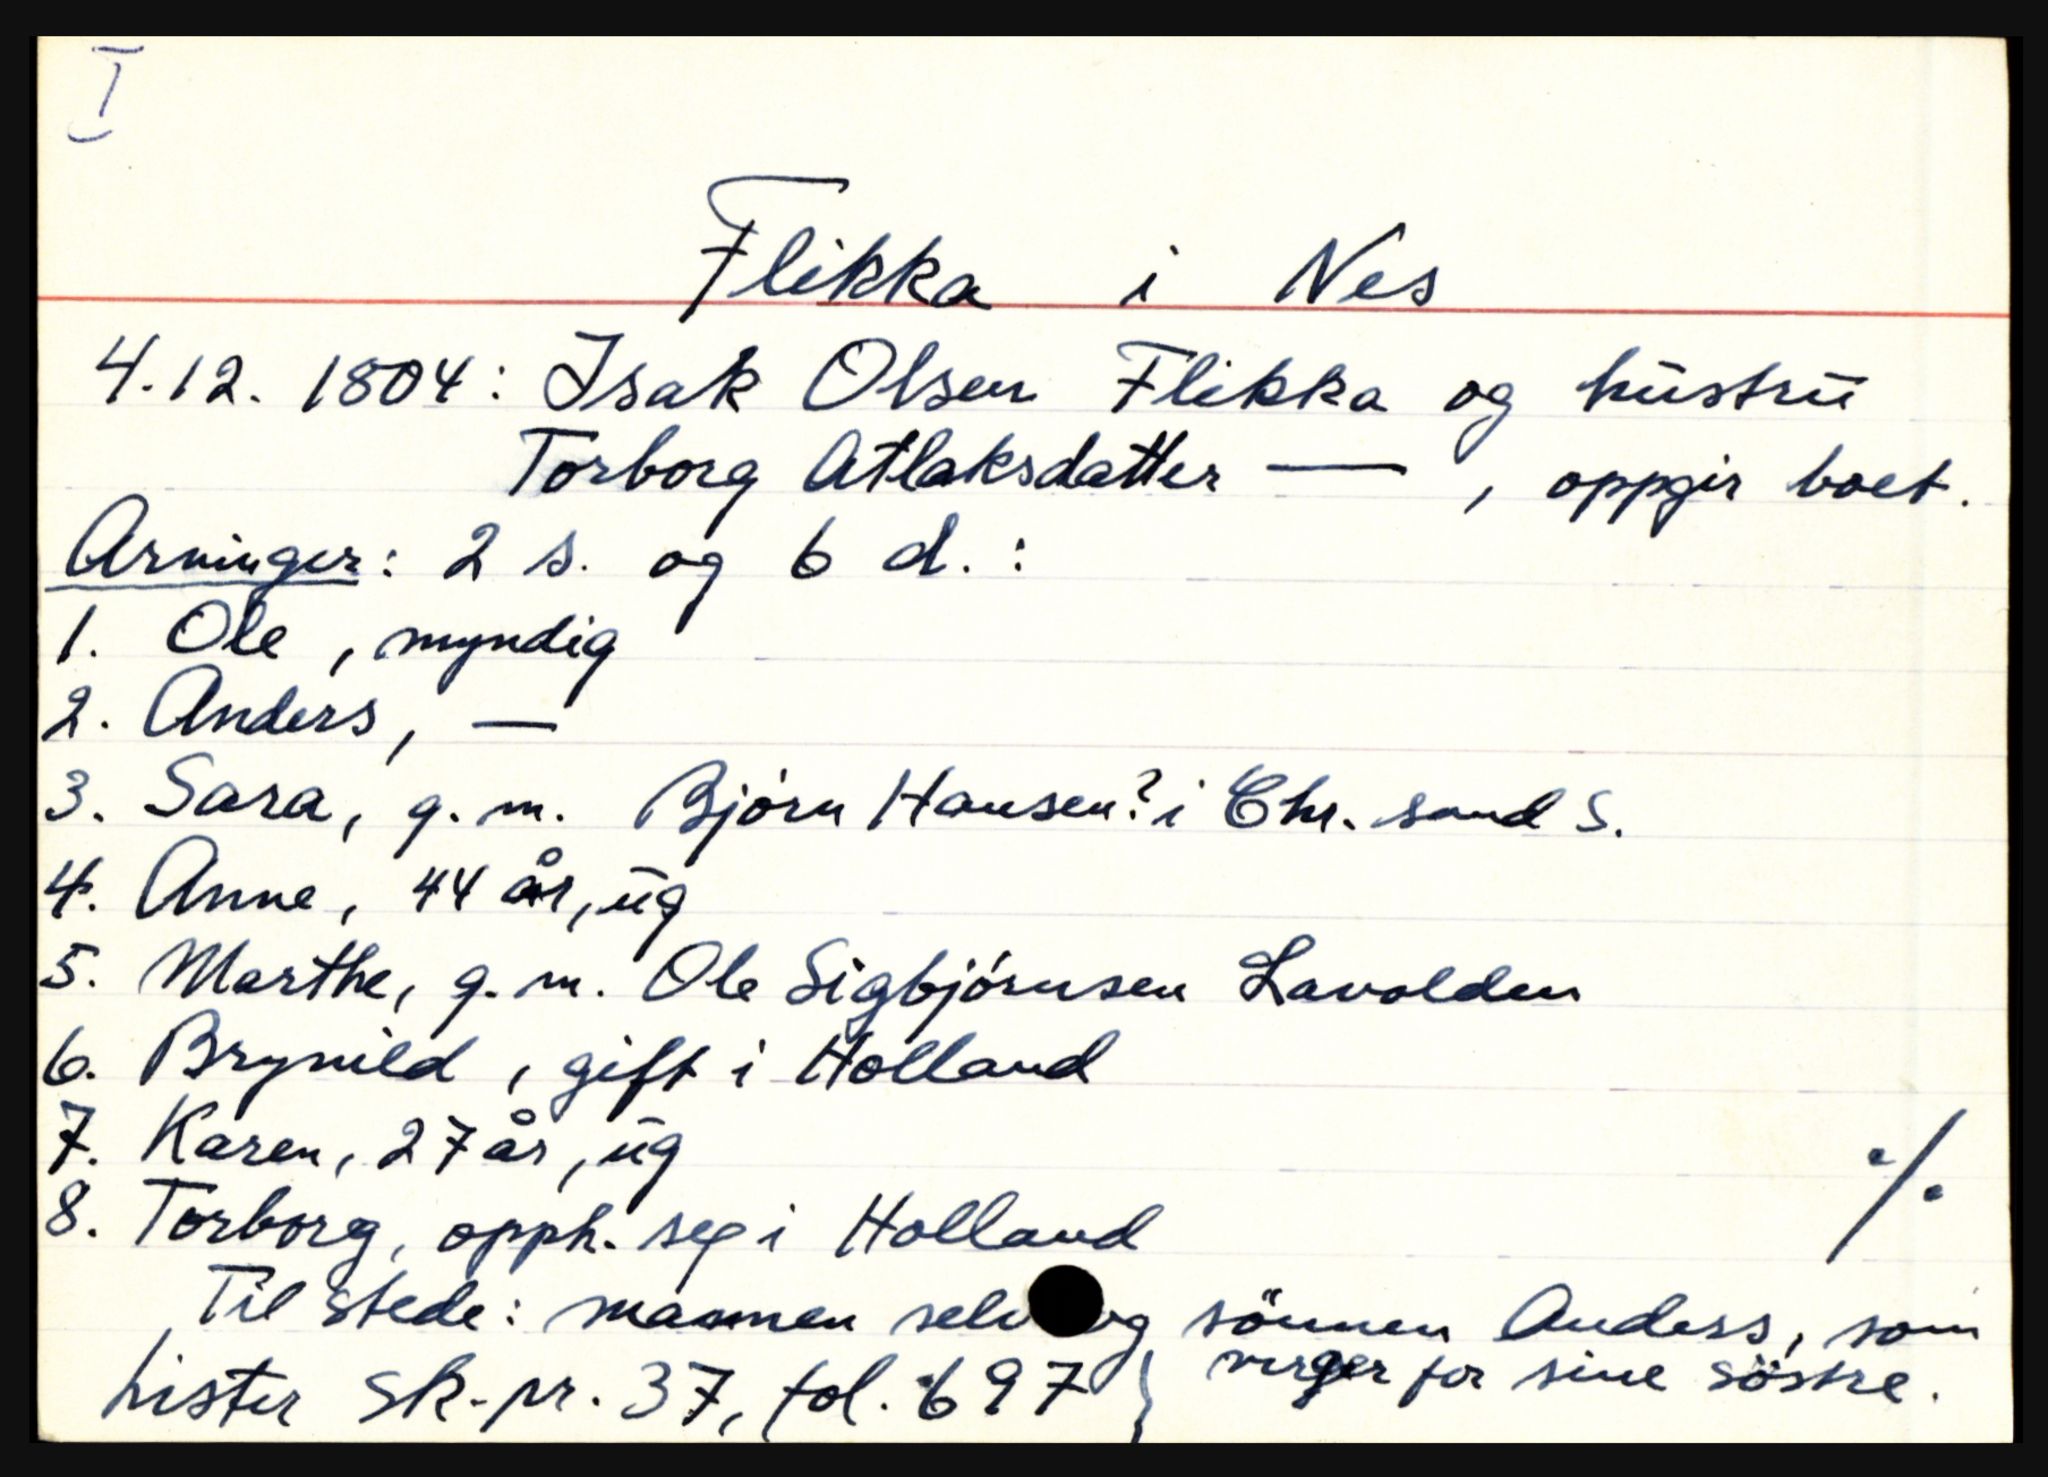 I
Flikka i Nes
4.12. 1804: Isak Olsen Flikka og hustru
Torborg Atlaksdatter —, oppgir boet.
Arninger: 2 s. og 6 d.:
1. Ole, myndig
2. Anders, —
3. Sara, g.m. Bjørn Hansen? i Chr.sand S.
4. Anne, 44 år, ug
5. Marthe, g.m. Ole Sigbjørnsen Lavolden
6. Brynild, gift i Holland
7. Karen, 27 år, ug
8. Torborg, opph. seg i Holland
·/·
Til stede: mannen selv og sönnen Anders, som
verger for sine söstre.
Lister Sk.pr. 37, fol. 697